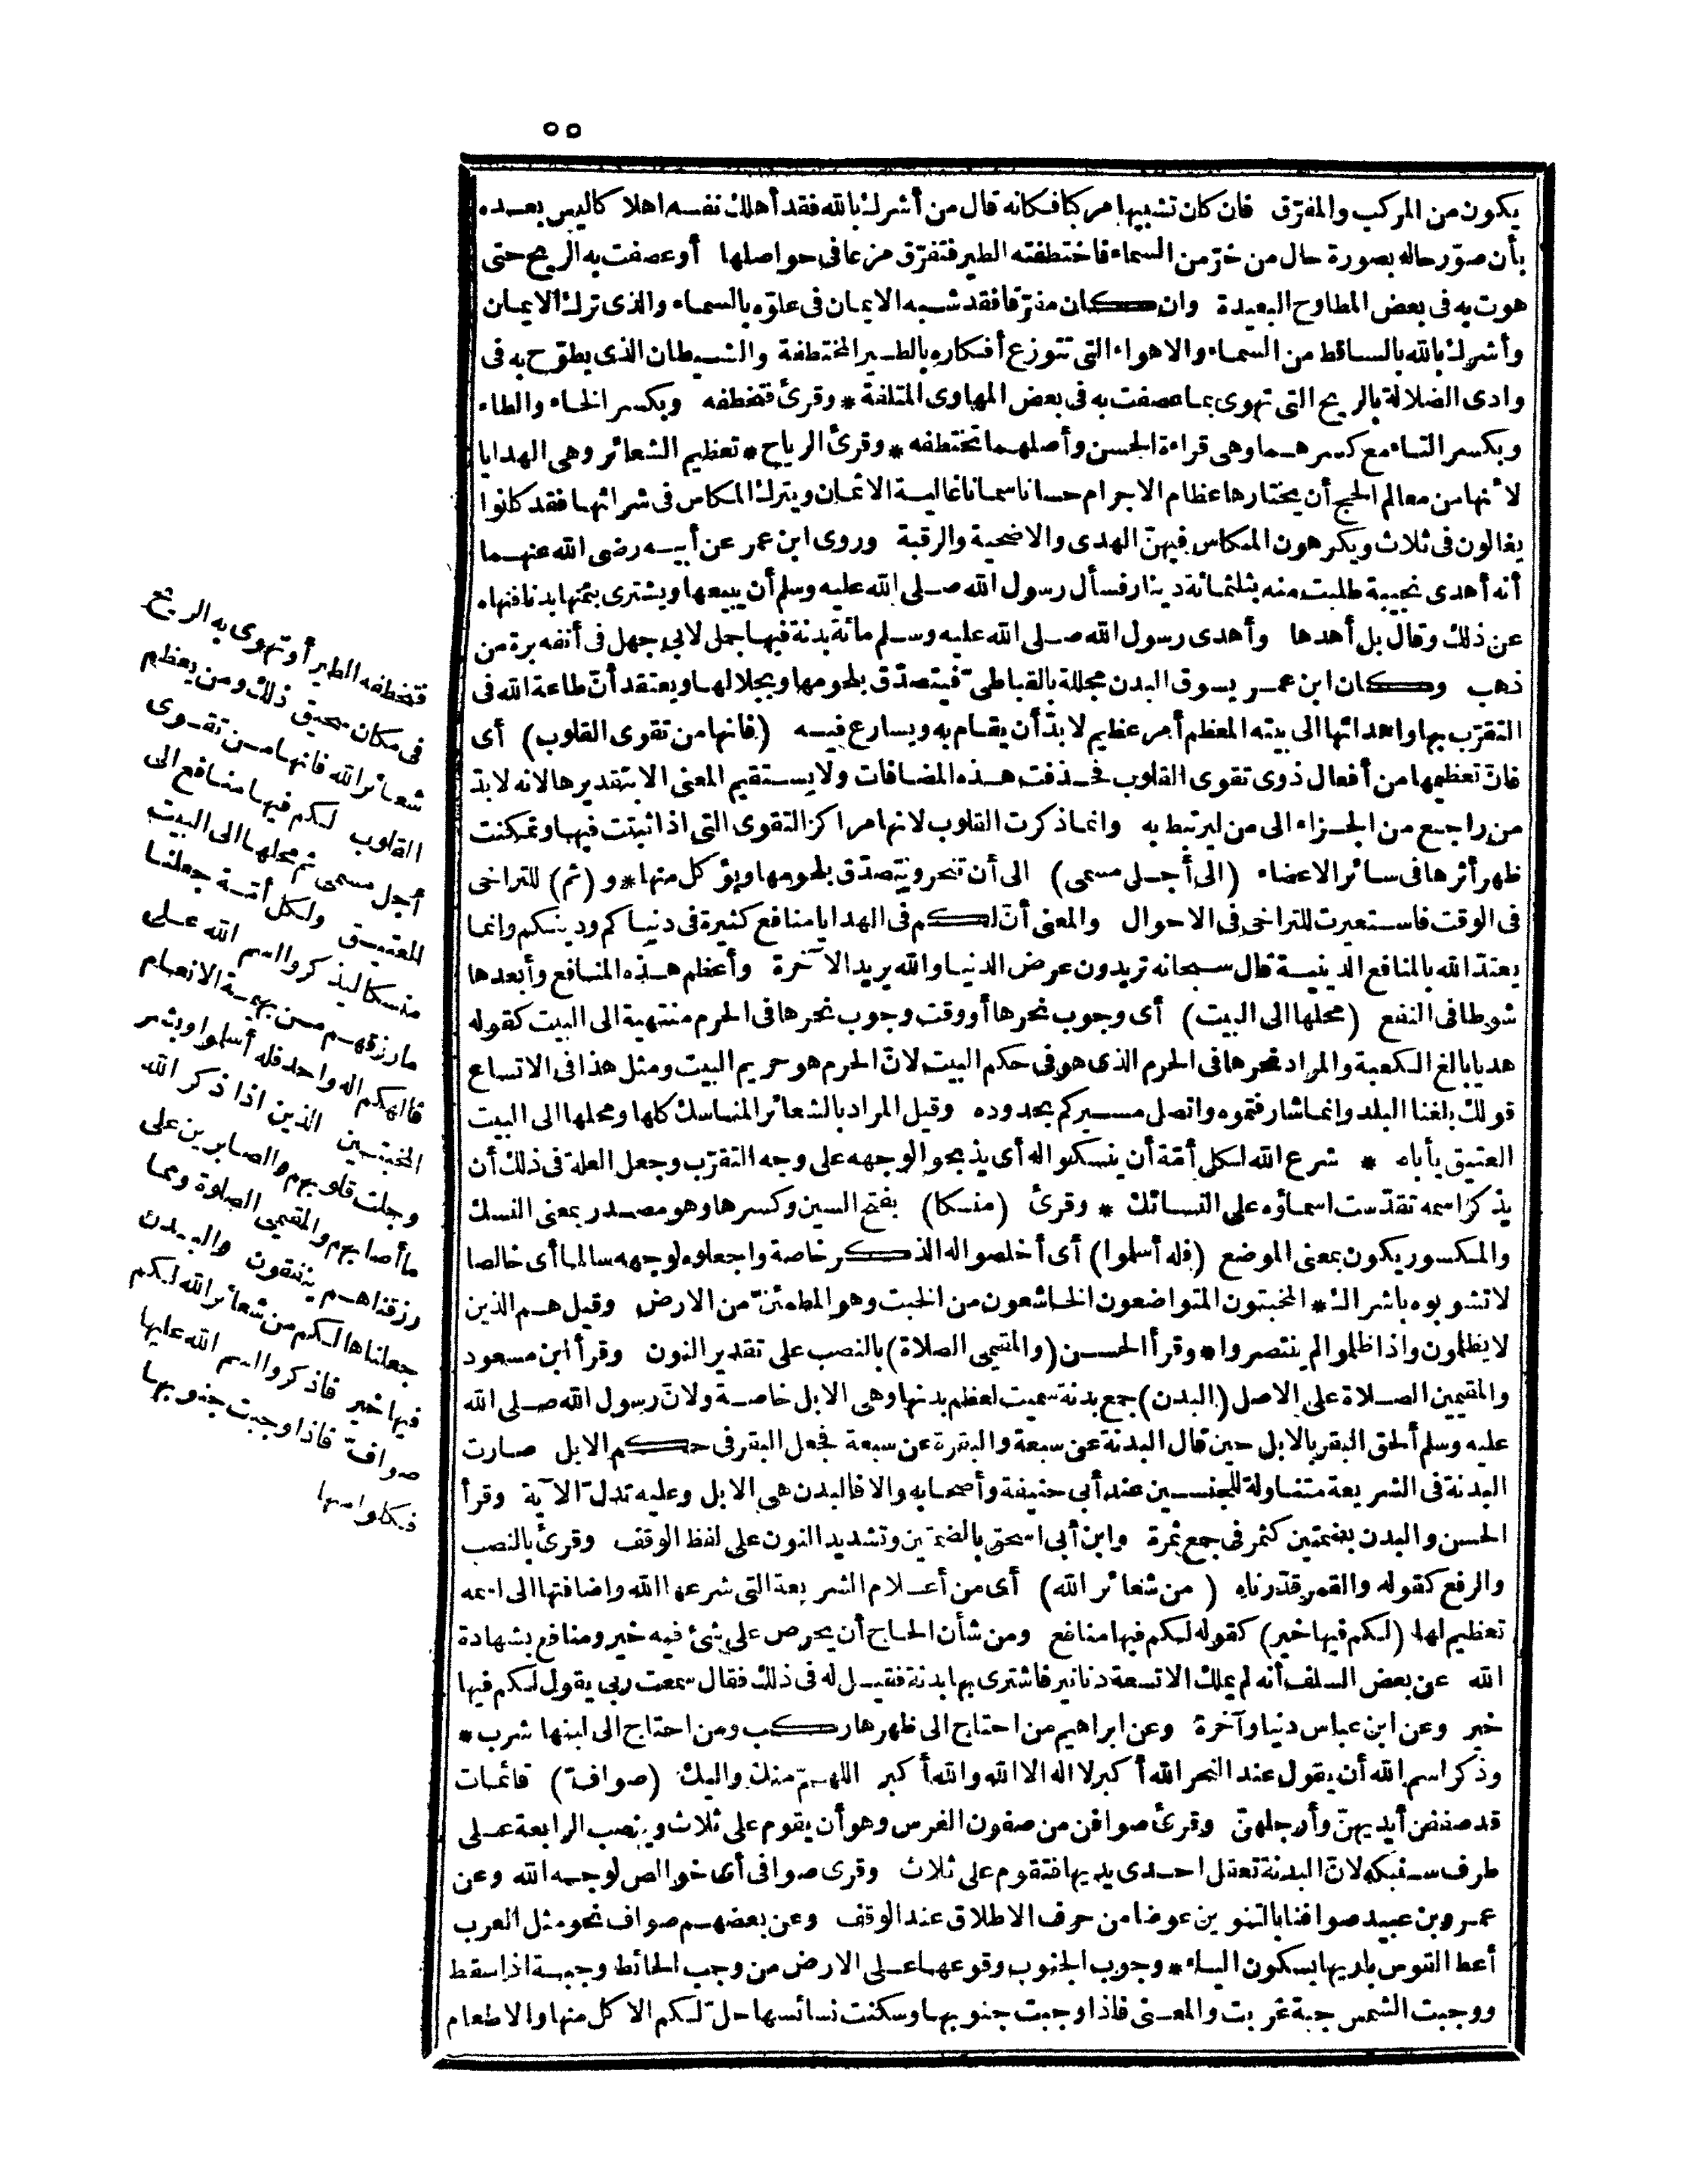 ٥٥
يكون من المركب والمفرّق فان كان تشبيها مركبا فكانه قال من أشرك بالله فقد أهلك نفسه اهلاكا ليس بعده
بأن صوّر حاله بصورة حال من خرّ من السماء فاختطفته الطير فتفرّق مزعا فى حواصلها أوعصفت به الريح حتى
هوت به فى بعض المطاوح البعيدة وان كان مفرّقا فقد شبه الايمان فى علوّه بالسماء والذى ترك الايمان
وأشرك بالله بالساقط من السماء والاهواء التى تتوزع أفكاره بالطير المختطفة والشيطان الذى يطوّح به فى
وادى الضلالة بالريح التى تهوى بما عصفت به فى بعض المهاوى المتلفة * وقرئ فتخطفه وبكسر الخاء والطاء
وبكسر التاء مع كسرهما وهى قراءة الحسن وأصلهما تختطفه * وقرئ الرياح * تعظيم الشعائر وهى الهدايا
لأنها من معالم الحج أن يختارها عظام الاجرام حسانا سمانا غالية الاثمان ويترك المكاس فى شرائها فقد كانوا
يغالون فى ثلاث ويكرهون المكاس فيهنّ الهدى والاضحية والرقبة وروى ابن عمر عن أبيه رضى الله عنهما
أنه أهدى نجيبة طلبت منه بثلثمائة دينار فسأل رسول الله صلى الله عليه وسلم أن يبيعها ويشترى بثمنها بدنا فنهاه
عن ذلك وقال بل أهدها وأهدى رسول الله صلى الله عليه وسلم مائة بدنة فيها جمل لابى جهل فى أنفه برة من
ذهب وكان ابن عمر يسوق البدن مجللة بالقباطىّ فيتصدّق بلحومها وبجلالها ويعتقد أنّ طاعة الله فى
التقرّب بها واهدائها الى بيته المعظم أمر عظيم لا بدّ أن يقام به ويسارع فيه (فانها من تقوى القلوب) أى
فانّ تعظيمها من أفعال ذوى تقوى القلوب فحذفت هذه المضافات ولا يستقيم المعنى الا بتقديرها لانه لا بدّ
من راجع من الجزاء الى من ليرتبط به وانما ذكرت القلوب لانها مراكز التقوى التى اذا ثبتت فيها وتمكنت
ظهر أثرها فى سائر الاعضاء (الى أجل مسمى) الى أن تنحر ويتصدّق بلحومها ويؤكل منها * و (ثم) للتراخى
فى الوقت فاستعيرت للتراخى فى الاحوال والمعنى أنّ لكم فى الهدايا منافع كثيرة فى دنياكم ودينكم وانما
يعتدّ الله بالمنافع الدينية قال سبحانه تريدون عرض الدنيا والله يريد الآخرة وأعظم هذه المنافع وأبعدها
شوطا فى النفع (محلها الى البيت) أى وجوب نحرها أو وقت وجوب نحرها فى الحرم منتهية الى البيت كقوله
هديا بالغ الكعبة والمراد نحرها فى الحرم الذى هو فى حكم البيت لانّ الحرم هو حريم البيت ومثل هذا فى الاتساع
قولك بلغنا البلد وانما شارفتموه واتصل مسيركم بحدوده وقيل المراد بالشعائر المناسك كلها ومحلها الى البيت
العتيق يأباه * شرع الله لكل أمّة أن ينسكوا له أى يذبحوا لوجهه على وجه التقرّب وجعل العلة فى ذلك أن
يذكر اسمه تقدّست اسماؤه على النسائك * وقرئ (منسكا) بفتح السين وكسرها وهو مصدر بمعنى النسك
والمكسور يكون بمعنى الموضع (فله أسلموا) أى أخلصوا له الذكر خاصة واجعلوه لوجهه سالما أى خالصا
لا تشوبوه باشراك * المخبتون المتواضعون الخاشعون من الخبت وهو المطمئنّ من الارض وقيل هم الذين
لا يظلمون واذا ظلموا لم ينتصروا * وقرأ الحسن (والمقيمى الصلاة) بالنصب على تقدير النون وقرأ ابن مسعود
والمقيمين الصلاة على الاصل (البدن) جمع بدنة سميت لعظم بدنها وهى الابل خاصة ولانّ رسول الله صلى الله
عليه وسلم ألحق البقر بالابل حين قال البدنة عن سبعة والبقرة عن سبعة فجعل البقر فى حكم الابل صارت
البدنة فى الشريعة متناولة للجنسين عند أبى حنيفة وأصحابه والا فالبدن هى الابل وعليه تدلّ الآية وقرأ
الحسن والبدن بضمتين كثمر فى جمع ثمرة وابن أبى اسحق بالضمتين وتشديد النون على لفظ الوقف وقرئ بالنصب
والرفع كقوله والقمر قدّرناه (من شعائر الله) أى من أعلام الشريعة التى شرعها الله واضافتها الى اسمه
تعظيم لها (لكم فيها خير) كقوله لكم فيها منافع ومن شأن الحاج أن يحرص على شئ فيه خير ومنافع بشهادة
الله عن بعض السلف أنه لم يملك الا تسعة دنانير فاشترى بها بدنة فقيل له فى ذلك فقال سمعت ربى يقول لكم فيها
خير وعن ابن عباس دنيا وآخرة وعن ابراهيم من احتاج الى ظهرها ركب ومن احتاج الى لبنها شرب *
وذكر اسم الله أن يقول عند النحر الله أكبر لا اله الا الله والله أكبر اللهمّ منك واليك (صوافّ) قائمات
قد صففن أيديهنّ وأرجلهنّ وقرئ صوافن من صفون الفرس وهو أن يقوم على ثلاث وينصب الرابعة على
طرف سنبكه لانّ البدنة تعقل احدى يديها فتقوم على ثلاث وقرى صوافى أى خوالص لوجه الله وعن
عمرو بن عبيد صوافنا بالتنوين عوضا من حرف الاطلاق عند الوقف وعن بعضهم صواف نحو مثل العرب
أعط القوس باريها بسكون الياء * وجوب الجنوب وقوعها على الارض من وجب الحائط وجبة اذا سقط
ووجبت الشمس جبة غربت والمعنى فاذا وجبت جنوبها وسكنت نسائسها حلّ لكم الاكل منها والاطعام
فتخطفه الطير أو تهوى به الريح
فى مكان سحيق ذلك ومن يعظم
شعائر الله فانها من تقوى
القلوب لكم فيها منافع الى
أجل مسمى ثم محلها الى البيت
العتيق ولكل أمّة جعلنا
منسكا ليذكروا اسم الله على
ما رزقهم من بهيمة الانعام
فالهكم اله واحد فله أسلموا وبشر
المخبتين الذين اذا ذكر الله
وجلت قلوبهم والصابرين على
ما أصابهم والمقيمى الصلوة ومما
رزقناهم ينفقون والبدن
جعلناها لكم من شعائر الله لكم
فيها خير فاذكروا اسم الله عليها
صوافّ فاذا وجبت جنوبها
فكلوا منها